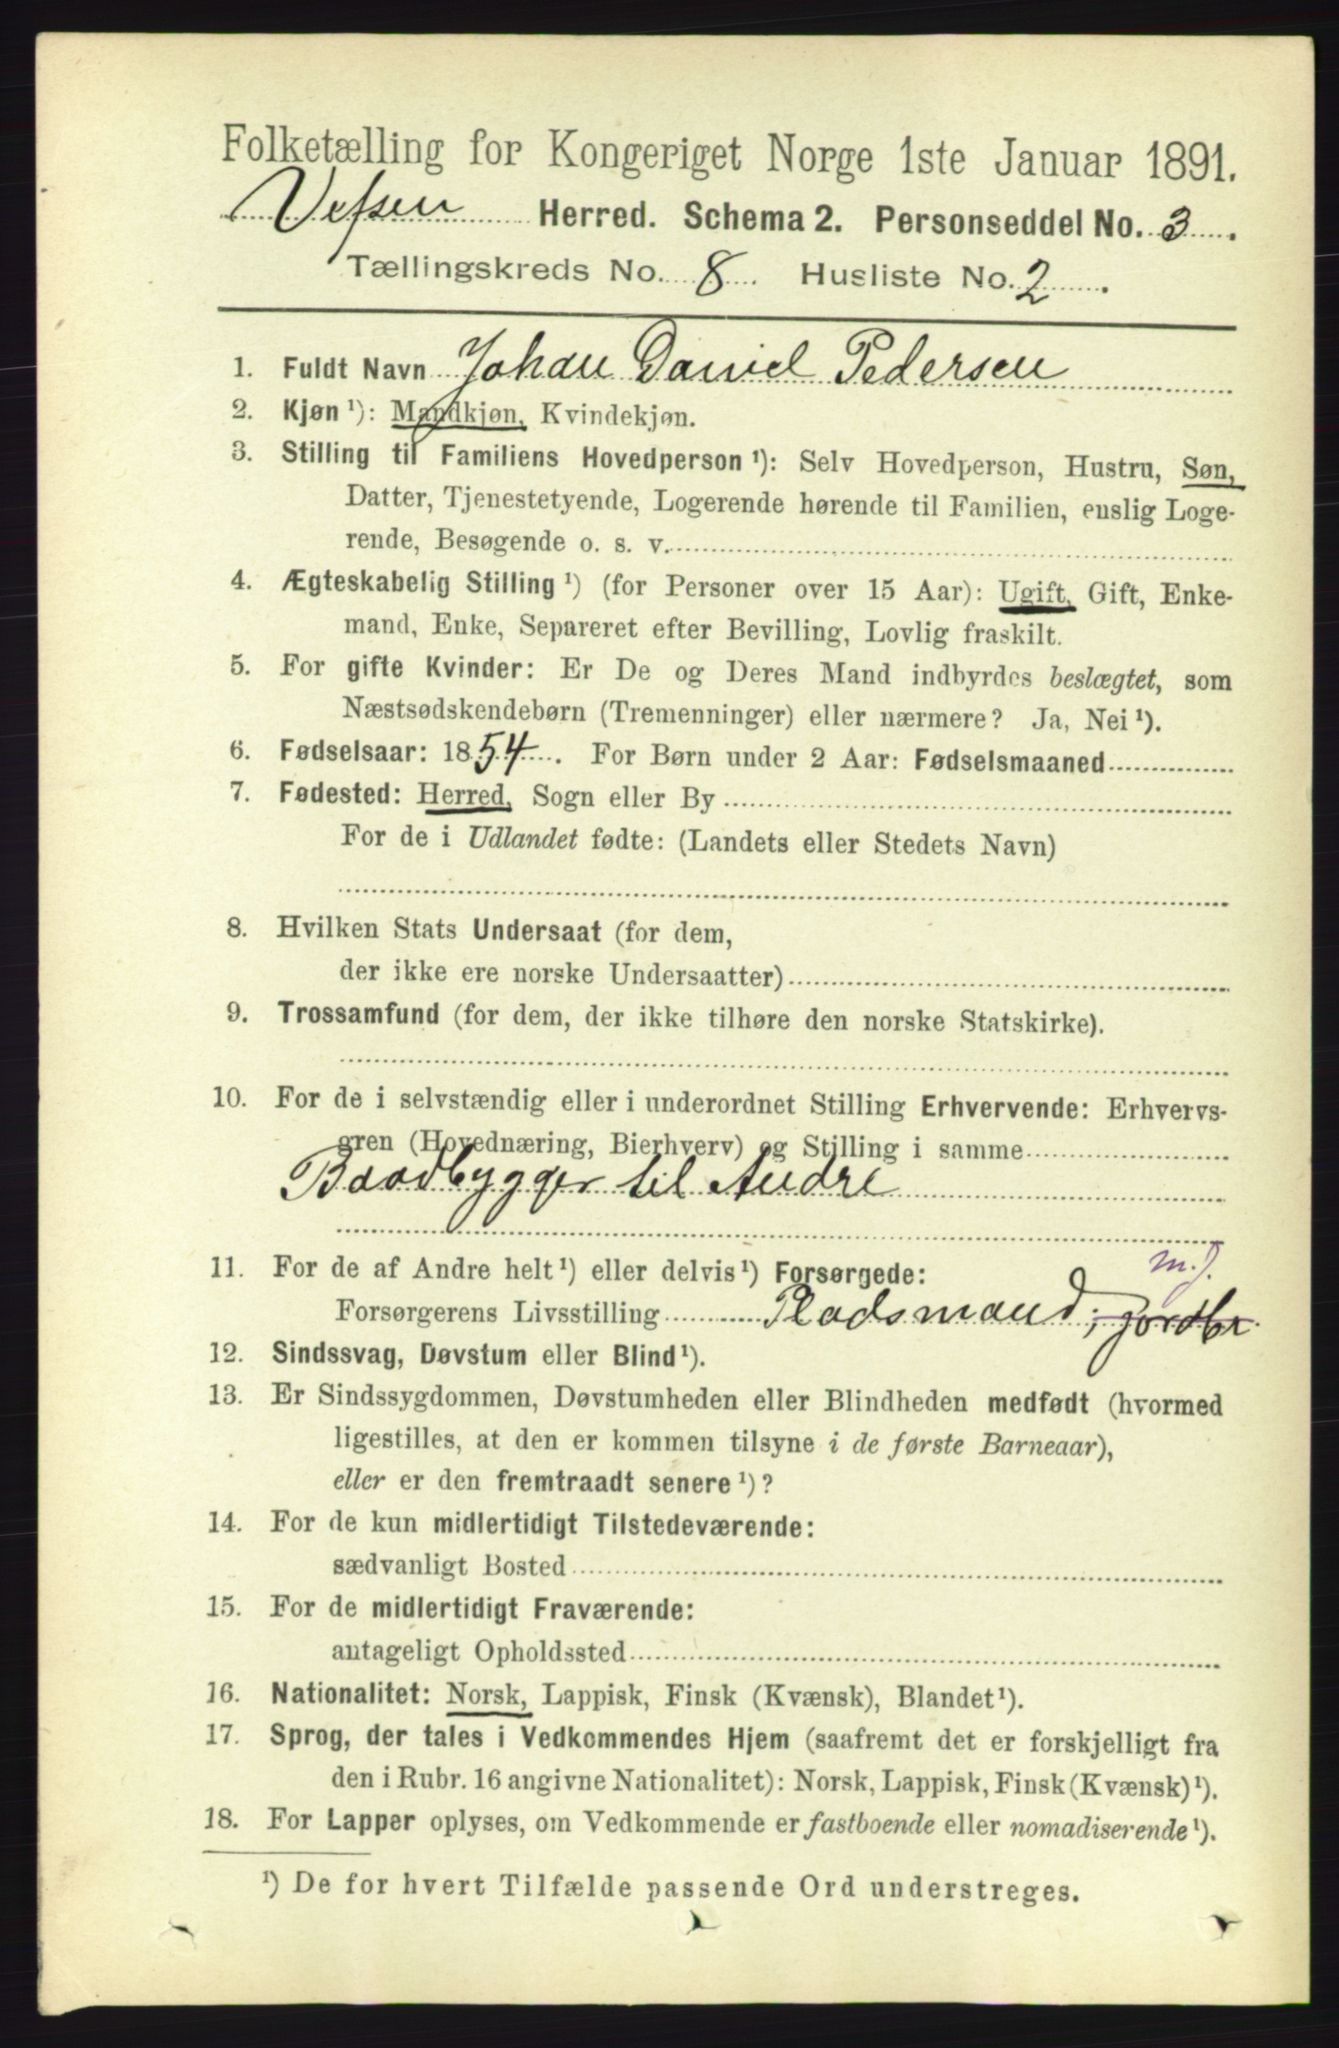 Folketælling for Kongeriget Norge 1ste Januar 1891.
Vefsen Herred. Schema 2. Personseddel No. 3.
Tællingskreds No. 8. Husliste No. 2.
1. Fuldt Navn Johan Daniel Pedersen
2. Kjøn ¹): Mandkjøn, Kvindekjøn.
3. Stilling til Familiens Hovedperson ¹): Selv Hovedperson, Hustru, Søn,
Datter, Tjenestetyende, Logerende hørende til Familien, enslig Loge-
rende, Besøgende o. s. v.
4. Ægteskabelig Stilling ¹) (for Personer over 15 Aar): Ugift, Gift, Enke-
mand, Enke, Separeret efter Bevilling, Lovlig fraskilt.
5. For gifte Kvinder: Er De og Deres Mand indbyrdes beslægtet, som
Næstsødskendebørn (Tremenninger) eller nærmere? Ja, Nei ¹).
6. Fødselsaar: 1854. For Børn under 2 Aar: Fødselsmaaned
7. Fødested: Herred, Sogn eller By
For de i Udlandet fødte: (Landets eller Stedets Navn)
8. Hvilken Stats Undersaat (for dem,
der ikke ere norske Undersaatter)
9. Trossamfund (for dem, der ikke tilhøre den norske Statskirke).
10. For de i selvstændig eller i underordnet Stilling Erhvervende: Erhvervs-
gren (Hovednæring, Bierhverv) og Stilling i samme
Baadbygger til Andre
11. For de af Andre helt ¹) eller delvis ¹) Forsørgede:
m. J.
Forsørgerens Livsstilling Pladsmand, jordbr.
12. Sindssvag, Døvstum eller Blind ¹).
13. Er Sindssygdommen, Døvstumheden eller Blindheden medfødt (hvormed
ligestilles, at den er kommen tilsyne i de første Barneaar),
eller er den fremtraadt senere ¹)?
14. For de kun midlertidigt Tilstedeværende:
sædvanligt Bosted
15. For de midlertidigt Fraværende:
antageligt Opholdssted
16. Nationalitet: Norsk, Lappisk, Finsk (Kvænsk), Blandet ¹).
17. Sprog, der tales i Vedkommendes Hjem (saafremt det er forskjelligt fra
den i Rubr. 16 angivne Nationalitet): Norsk, Lappisk, Finsk (Kvænsk) ¹).
18. For Lapper oplyses, om Vedkommende er fastboende eller nomadiserende ¹).
¹) De for hvert Tilfælde passende Ord understreges.